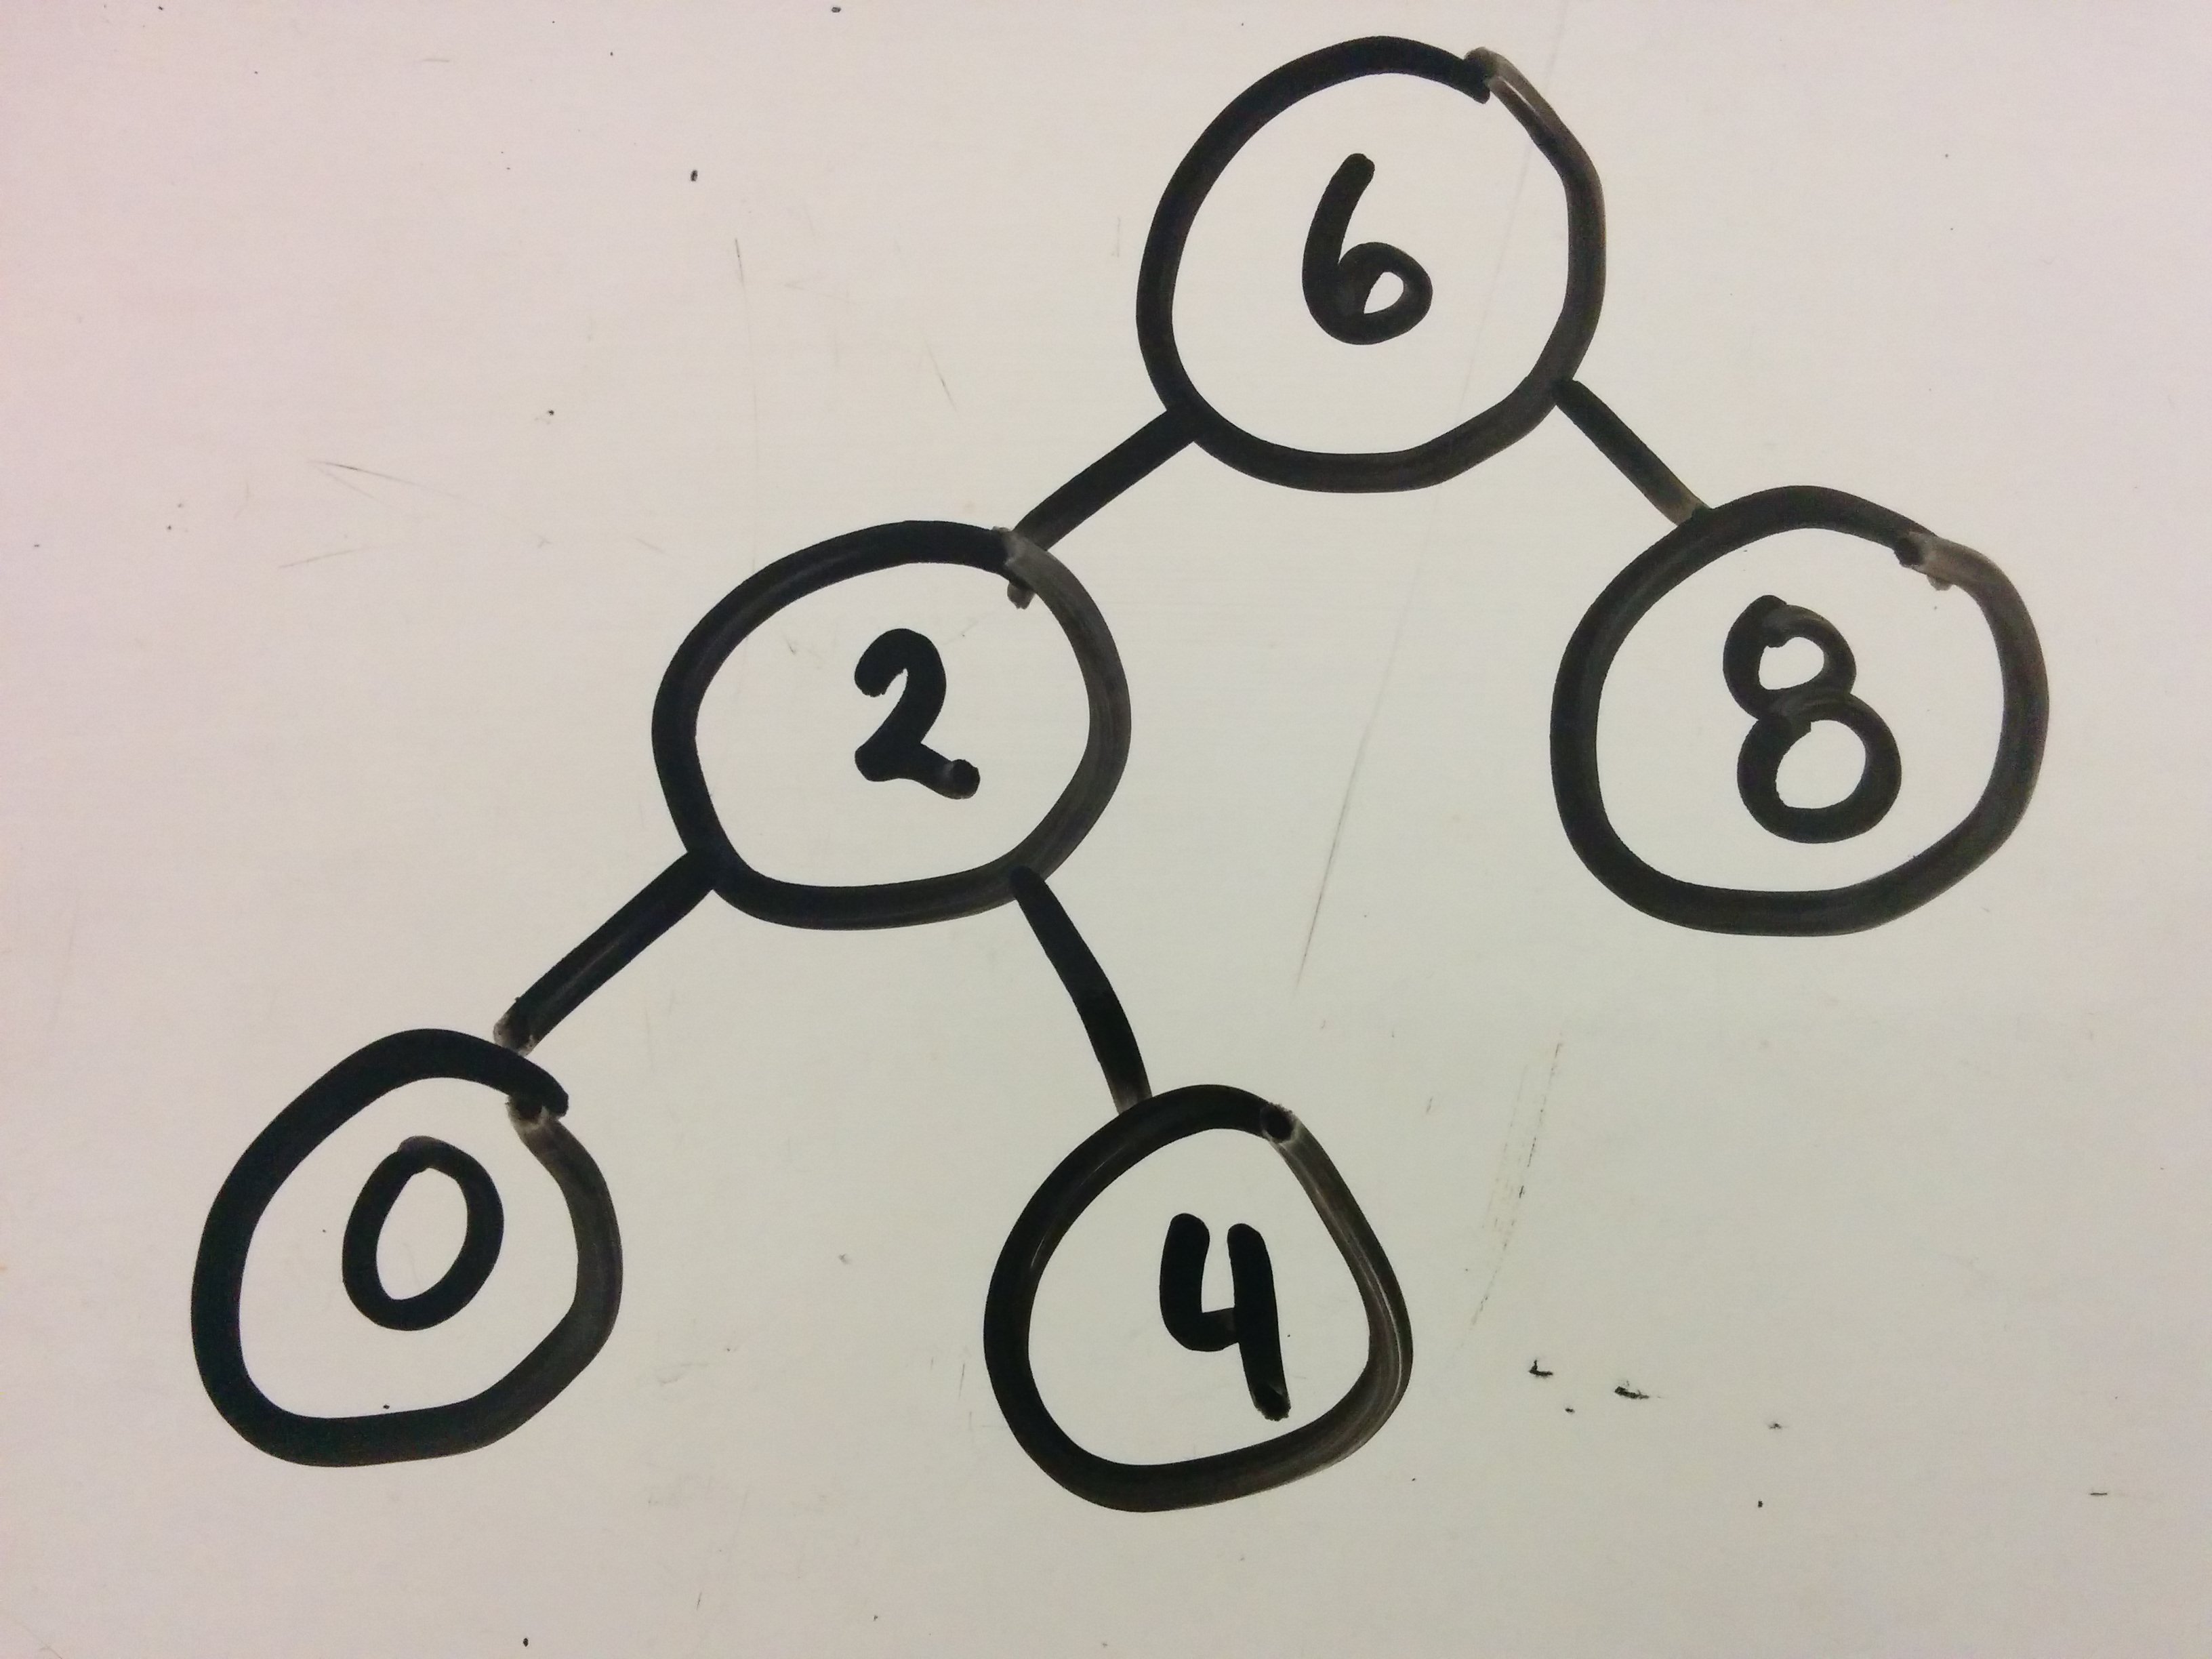 6
2
8
0
4